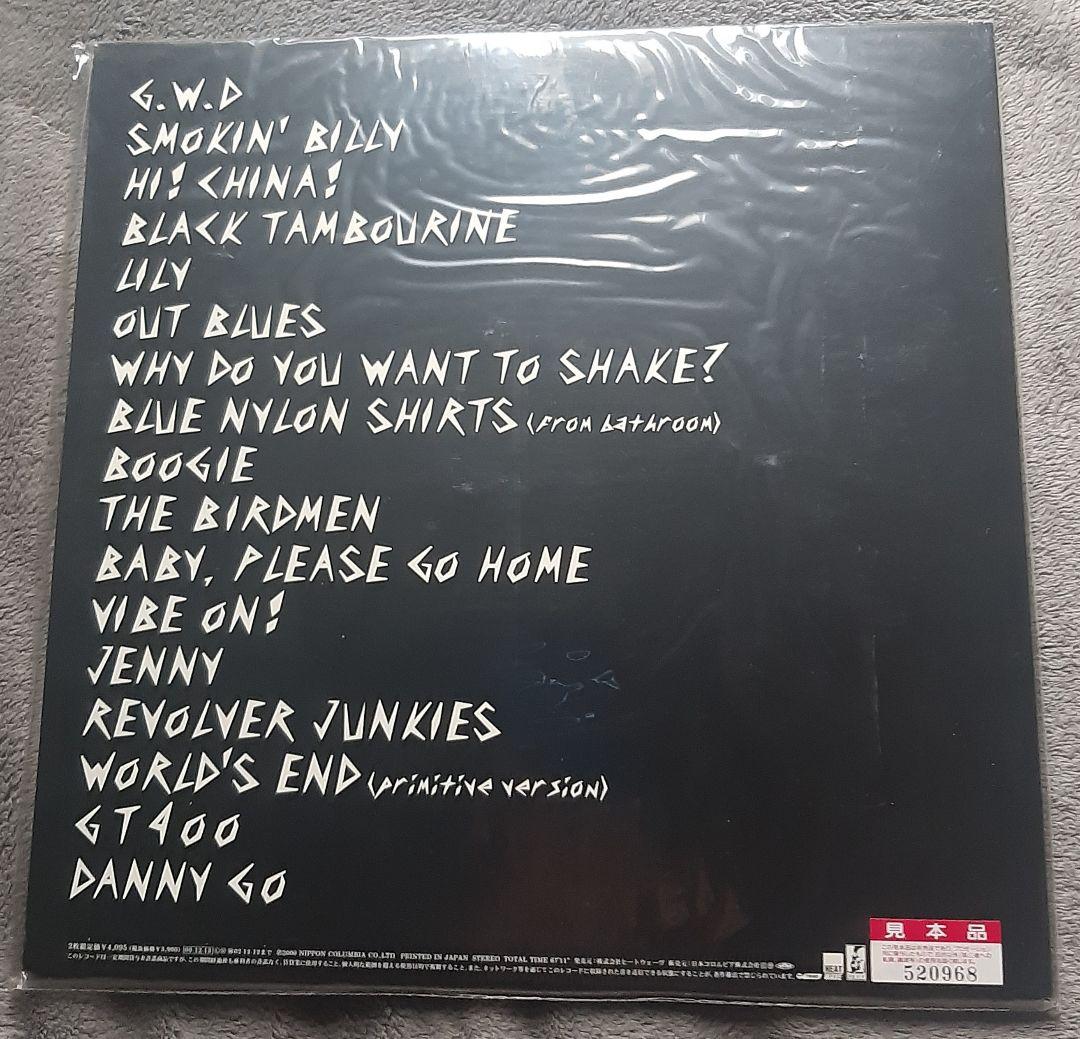 G.W.D
SMOKIN' BILLY
HI! CHINA!
BLACK TAMBOURINE
LILY
OUT BLUES
WHY DO YOU WANT TO SHAKE?
BLUE NYLON SHIRTS (from bathroom)
BOOGIE
THE BIRDMEN
BABY, PLEASE GO HOME
VIBE ON!
JENNY
REVOLVER JUNKIES
WORLD'S END (primitive version)
GT400
DANNY GO
2枚組定価¥4,095 (税抜価格¥3,900) 00.12.13 02.12.12まで ℗2000 NIPPON COLUMBIA CO.,LTD PRINTED IN JAPAN STEREO TOTAL TIME 67'11" 発売元:株式会社ヒートウェーヴ 販売元:日本コロムビア株式会社
見本品
520968